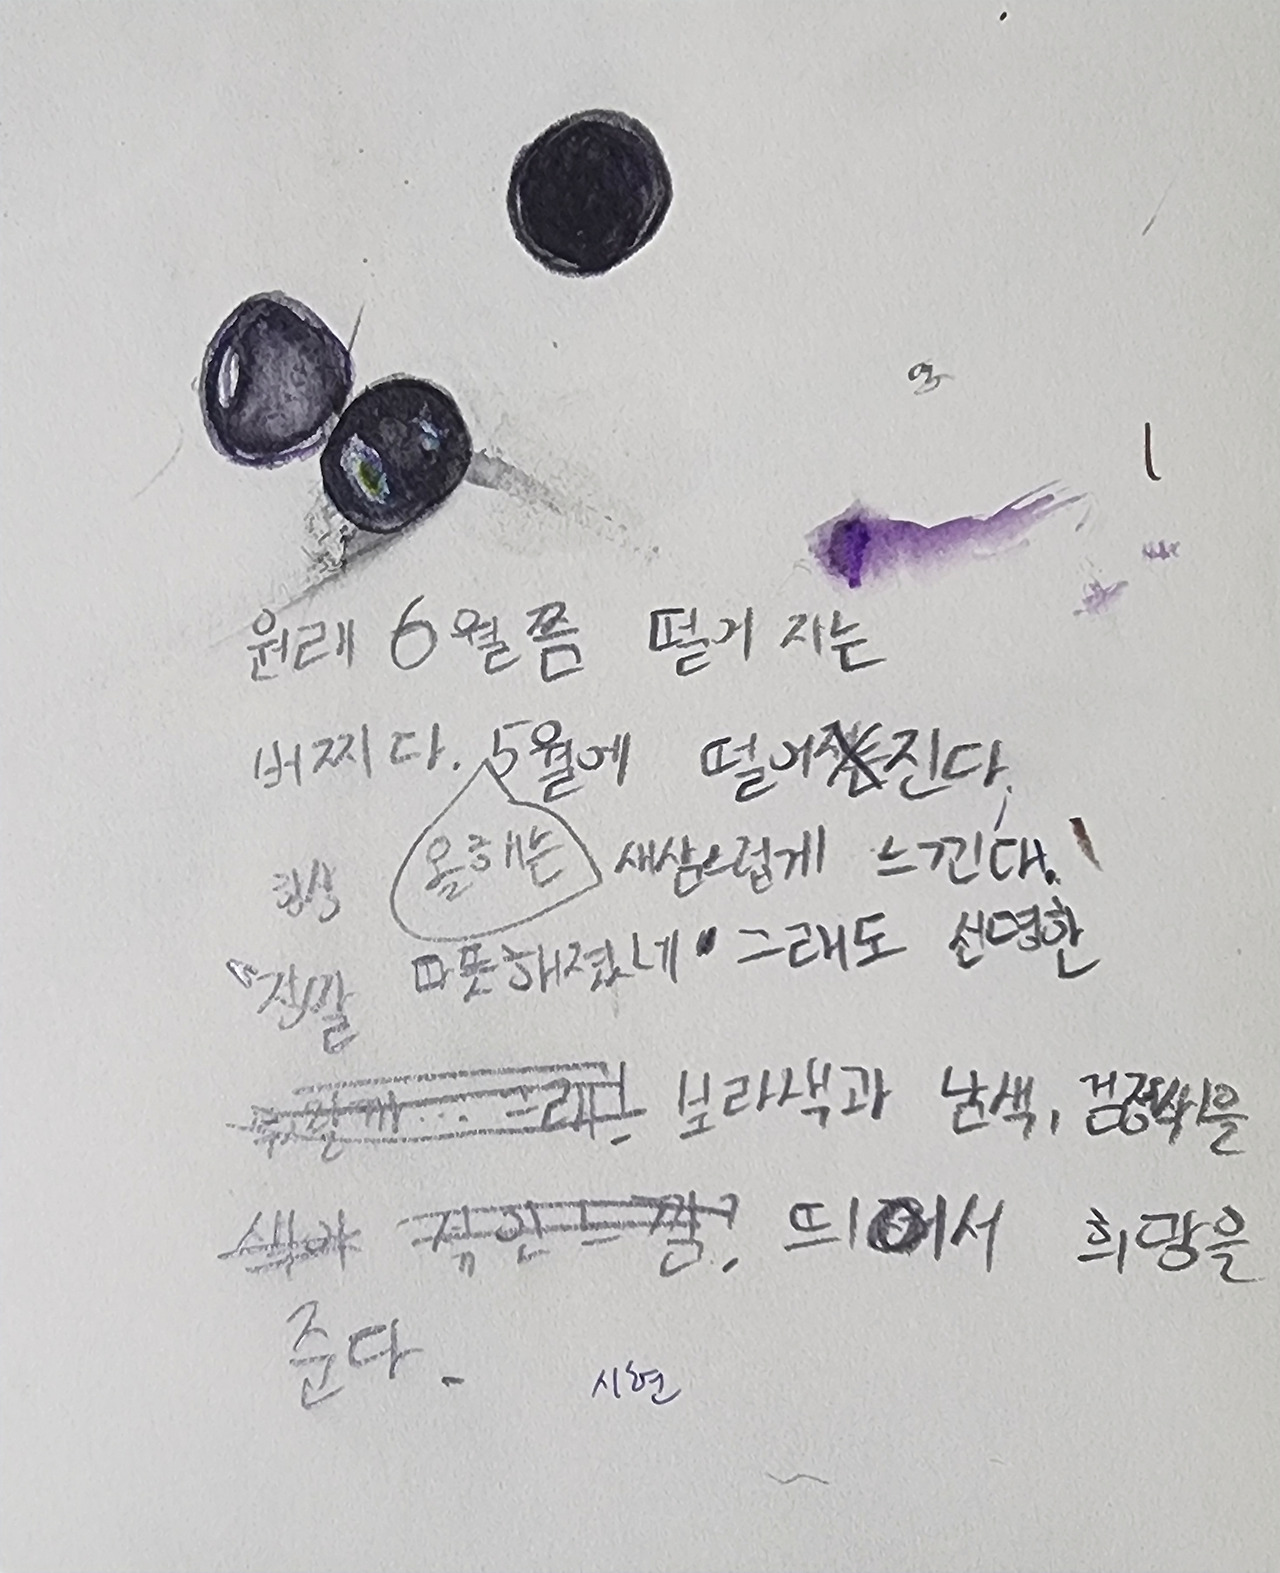 원래 6월쯤 떨어지는
버찌다. 5월에 떨어진다.
항상 올해는 새삼스럽게 느낀다.
정말 따뜻해졌네. 그래도 선명한
보라색과 남색, 검정색을
띄어서 희망을
준다.
시현